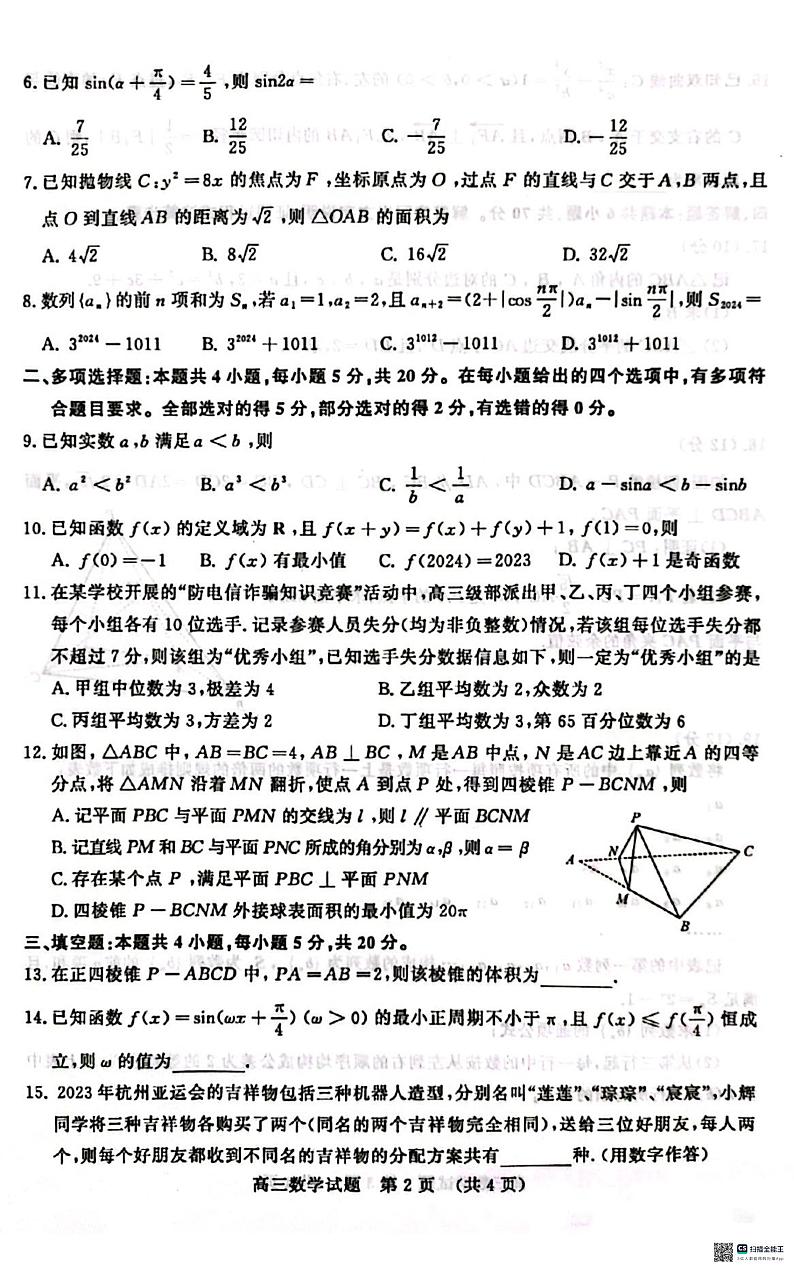 6.已知 sin(α + π/4) = 4/5 ,则 sin2α =
A. 7/25 B. 12/25 C. - 7/25 D. - 12/25
7.已知抛物线 C:y² = 8x 的焦点为 F ,坐标原点为 O ,过点 F 的直线与 C 交于 A,B 两点,且
点 O 到直线 AB 的距离为 √2 ,则 △OAB 的面积为
A. 4√2 B. 8√2 C. 16√2 D. 32√2
8.数列{aₙ}的前 n 项和为 Sₙ,若 a₁=1,a₂=2,且 aₙ₊₂=(2+|cos nπ/2|)aₙ-|sin nπ/2|,则 S₂₀₂₄=
A. 3²⁰²⁴ - 1011 B. 3²⁰²⁴ + 1011 C. 3¹⁰¹² - 1011 D. 3¹⁰¹² + 1011
二、多项选择题:本题共 4 小题,每小题 5 分,共 20 分。在每小题给出的四个选项中,有多项符
合题目要求。全部选对的得 5 分,部分选对的得 2 分,有选错的得 0 分。
9.已知实数 a,b 满足 a < b ,则
A. a² < b² B. a³ < b³ C. 1/b < 1/a D. a - sina < b - sinb
10.已知函数 f(x) 的定义域为 R ,且 f(x + y) = f(x) + f(y) + 1, f(1) = 0,则
A. f(0)=-1 B. f(x) 有最小值 C. f(2024)=2023 D. f(x)+1 是奇函数
11.在某学校开展的“防电信诈骗知识竞赛”活动中,高三级部派出甲、乙、丙、丁四个小组参赛,
每个小组各有 10 位选手.记录参赛人员失分(均为非负整数)情况,若该组每位选手失分都
不超过 7 分,则该组为“优秀小组”,已知选手失分数据信息如下,则一定为“优秀小组”的是
A.甲组中位数为 3,极差为 4 B.乙组平均数为 2,众数为 2
C.丙组平均数为 3,方差为 2 D.丁组平均数为 3,第 65 百分位数为 6
12.如图, △ABC 中, AB=BC=4, AB ⊥ BC ,M 是AB 中点, N 是AC 边上靠近A 的四等
分点,将 △AMN 沿着 MN 翻折,使点 A 到点 P 处,得到四棱锥 P - BCNM ,则
A.记平面 PBC 与平面 PMN 的交线为 l ,则 l ∥ 平面 BCNM
B.记直线 PM 和 BC 与平面 PNC 所成的角分别为 α,β ,则 α = β
C.存在某个点 P ,满足平面 PBC ⊥ 平面 PNM
D.四棱锥 P - BCNM 外接球表面积的最小值为 20π
P
A
N
C
M
B
三、填空题:本题共 4 小题,每小题 5 分,共 20 分。
13.在正四棱锥 P - ABCD 中, PA = AB = 2,则该棱锥的体积为________.
14.已知函数 f(x) = sin(ωx + π/4) (ω > 0) 的最小正周期不小于 π ,且 f(x) ⩽ f(π/4) 恒成
立,则 ω 的值为__________.
15. 2023 年杭州亚运会的吉祥物包括三种机器人造型,分别名叫“莲莲”、“琮琮”、“宸宸”,小辉
同学将三种吉祥物各购买了两个(同名的两个吉祥物完全相同),送给三位好朋友,每人两
个,则每个好朋友都收到不同名的吉祥物的分配方案共有________种.(用数字作答)
高三数学试题 第 2 页 (共 4 页)
CS 扫描全能王